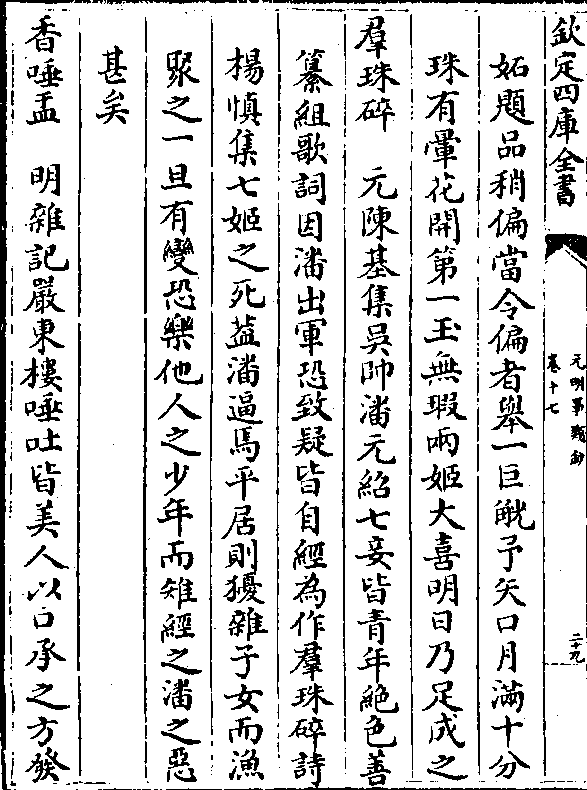 欽定四庫全書
元明事類鈔
卷十七
二十九
妬題品稍偏當令偏者舉一巨觥予矢口月滿十分
珠有暈花開第一玉無瑕兩姬大喜明日乃足成之
羣珠碎　元陳基集吳帥潘元紹七妾皆青年絶色善
纂組歌詞因潘出軍恐致疑皆自經為作羣珠碎詩
楊慎集七姬之死葢潘逼焉平居則獶雜子女而漁
聚之一旦有變恐樂他人之少年而雉經之潘之惡
甚矣
香唾盂　明雜記嚴東樓唾吐皆美人以口承之方發